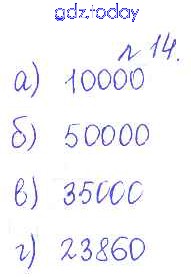 gdz.today
№ 14.
а) 10000
б) 50000
в) 35000
г) 23860